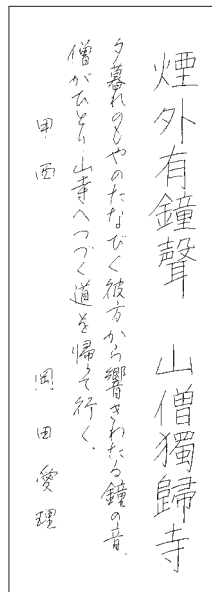 煙外有鐘聲　山僧獨歸寺
夕暮れのもやのたなびく彼方から響きわたる鐘の音、
僧がひとり山寺へつづく道を帰って行く。
甲西　岡田愛理